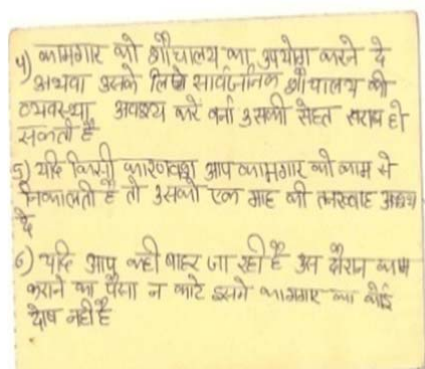 4) कामगार को शौचालय का उपयोग करने दे
अथवा उसके लिए सार्वजनिक शौचालय की
व्यवस्था अवश्य करे वर्ना उसकी सेहत खराब हो
सकती है
5) यदि किसी कारणवश आप कामगार को काम से
निकालती है तो उसको एक माह की तनख्वाह अवश्य
दे
6) यदि आप कही बाहर जा रही है उस दौरान काम
कराने का पैसा न काटे इसमे कामगार का कोई
दोष नही है